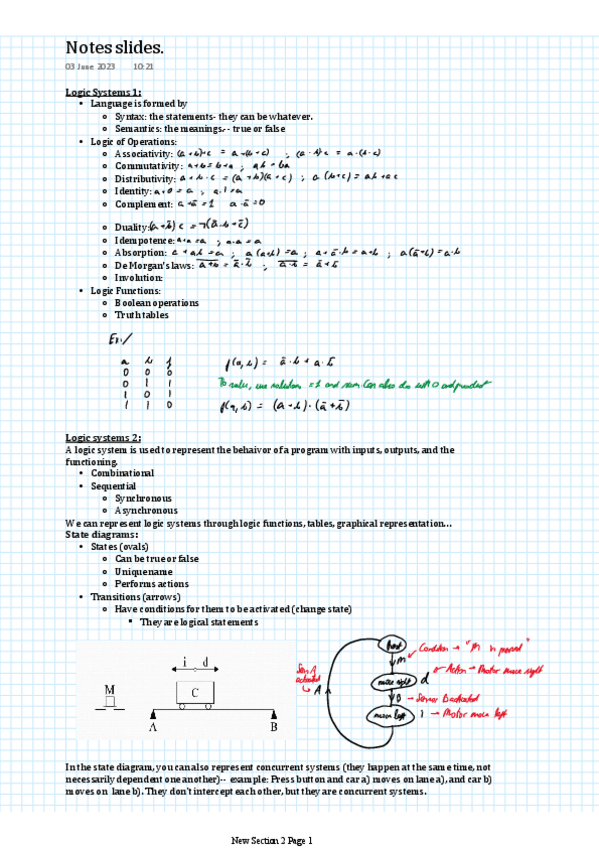 Notes slides.
03 June 2023 10:21
Logic Systems 1:
• Language is formed by
o Syntax: the statements- they can be whatever.
o Semantics: the meanings-- true or false
• Logic of Operations:
o Associativity: (a+b)+c = a+(b+c) ; (a·b)·c = a·(b·c)
o Commutativity: a+b=b+a ; ab=ba
o Distributivity: a+b·c = (a+b)(a+c) ; a(b+c) = ab+ac
o Identity: a+0=a ; a·1=a
o Complement: a+ā=1 a·ā=0
o Duality:
o Idempotence: a+a=a ; a·a=a
o Absorption: a+ab=a ; a(a+b)=a ; a+ā·b=a+b ; a(ā+b)=a·b
o De Morgan's laws: a̅+̅b̅ = ā·b̅ ; a̅·̅b̅ = ā+b̅
o Involution:
• Logic Functions:
o Boolean operations
o Truth tables
Ex:/
a b f
0 0 0
0 1 1
1 0 1
1 1 0
f(a,b) = ā·b + a·b̅
f(a,b) = (a+b)·(ā+b̅)
Logic systems 2:
A logic system is used to represent the behaivor of a program with inputs, outputs, and the
functioning.
• Combinational
• Sequential
o Synchronous
o Asynchronous
We can represent logic systems through logic functions, tables, graphical representation...
State diagrams:
• States (ovals)
o Can be true or false
o Unique name
o Performs actions
• Transitions (arrows)
o Have conditions for them to be activated (change state)
▪ They are logical statements
i d
M C
A B
M
Condition → "M is pressed"
move right d
Action → Motor move right
A
move left i → Motor move left
In the state diagram, you can also represent concurrent systems (they happen at the same time, not
necessarily dependent one another)-- example: Press button and car a) moves on lane a), and car b)
moves on lane b). They don't intercept each other, but they are concurrent systems.
New Section 2 Page 1